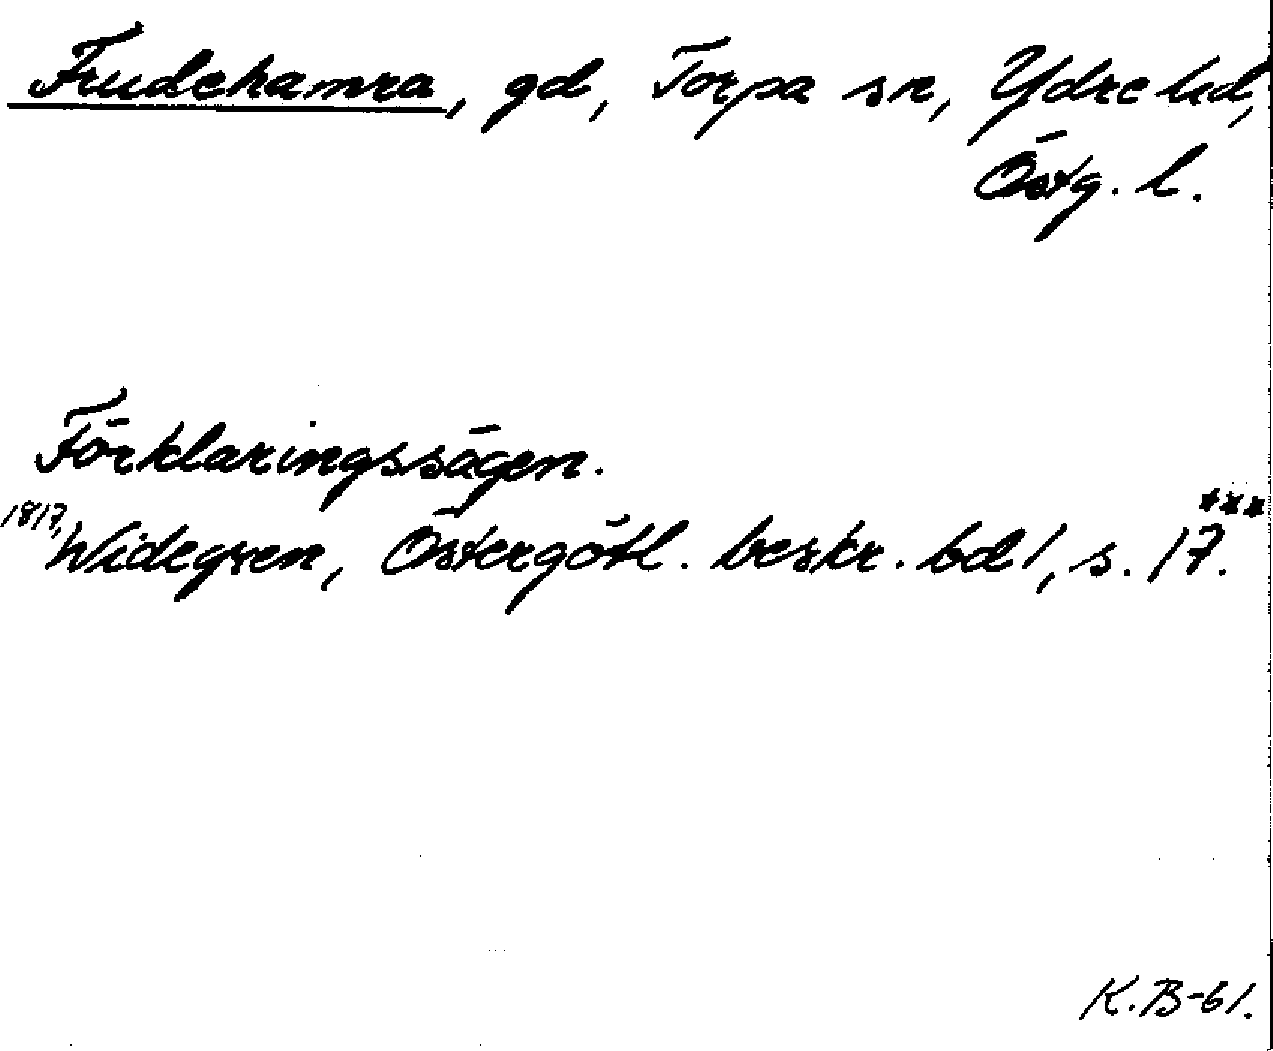 Frudehamra, gd, Torpa sn, Ydre hd,
Östg. l.
Förklaringssägen.
***
1817, Widegren, Östergötl. beskr. bd 1, s. 17.
K.B-61.